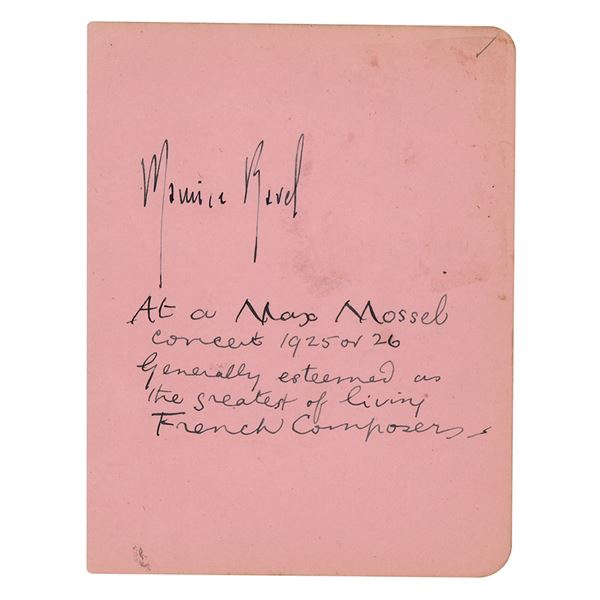 Maurice Ravel
At a Max Mossel
concert 1925 or 26
Generally esteemed as
the greatest of living
French Composers